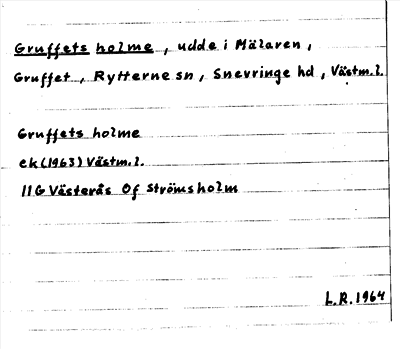 Gruffets holme, udde i Mälaren,
Gruffet, Rytterne sn, Snevringe hd, Västm.l.
Gruffets holme
ek (1963) Västm.l.
11G Västerås 0f Strömsholm
L.R. 1964